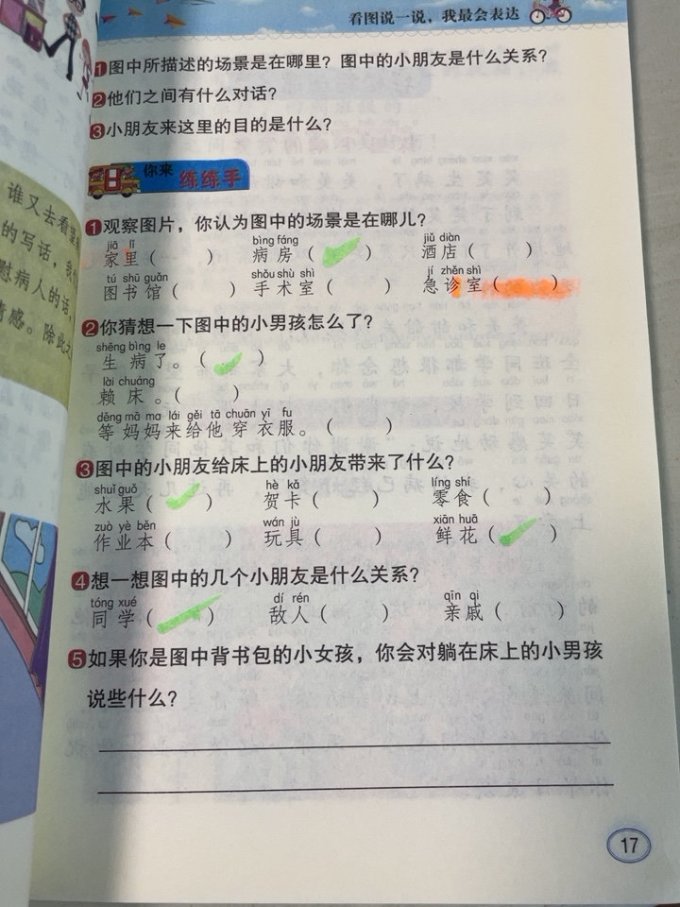 看图说一说，我最会表达
1图中所描述的场景是在哪里？图中的小朋友是什么关系？
2他们之间有什么对话？
3小朋友来这里的目的是什么？
你来 练练手
1观察图片，你认为图中的场景是在哪儿？
jiā lǐ bìng fáng jiǔ diàn
家里（ ） 病房（ ） 酒店（ ）
tú shū guǎn shǒu shù shì jí zhěn shì
图书馆（ ） 手术室（ ） 急诊室（ ）
2你猜想一下图中的小男孩怎么了？
shēng bìng le
生病了。（ ）
lài chuáng
赖床。（ ）
děng mā ma lái gěi tā chuān yī fu
等妈妈来给他穿衣服。（ ）
3图中的小朋友给床上的小朋友带来了什么？
shuǐ guǒ hè kǎ líng shí
水果（ ） 贺卡（ ） 零食（ ）
zuò yè běn wán jù xiān huā
作业本（ ） 玩具（ ） 鲜花（ ）
4想一想图中的几个小朋友是什么关系？
tóng xué dí rén qīn qi
同学（ ） 敌人（ ） 亲戚（ ）
5如果你是图中背书包的小女孩，你会对躺在床上的小男孩
说些什么？
17
谁又去看望
的写话，我
慰病人的话，
情感。除此之